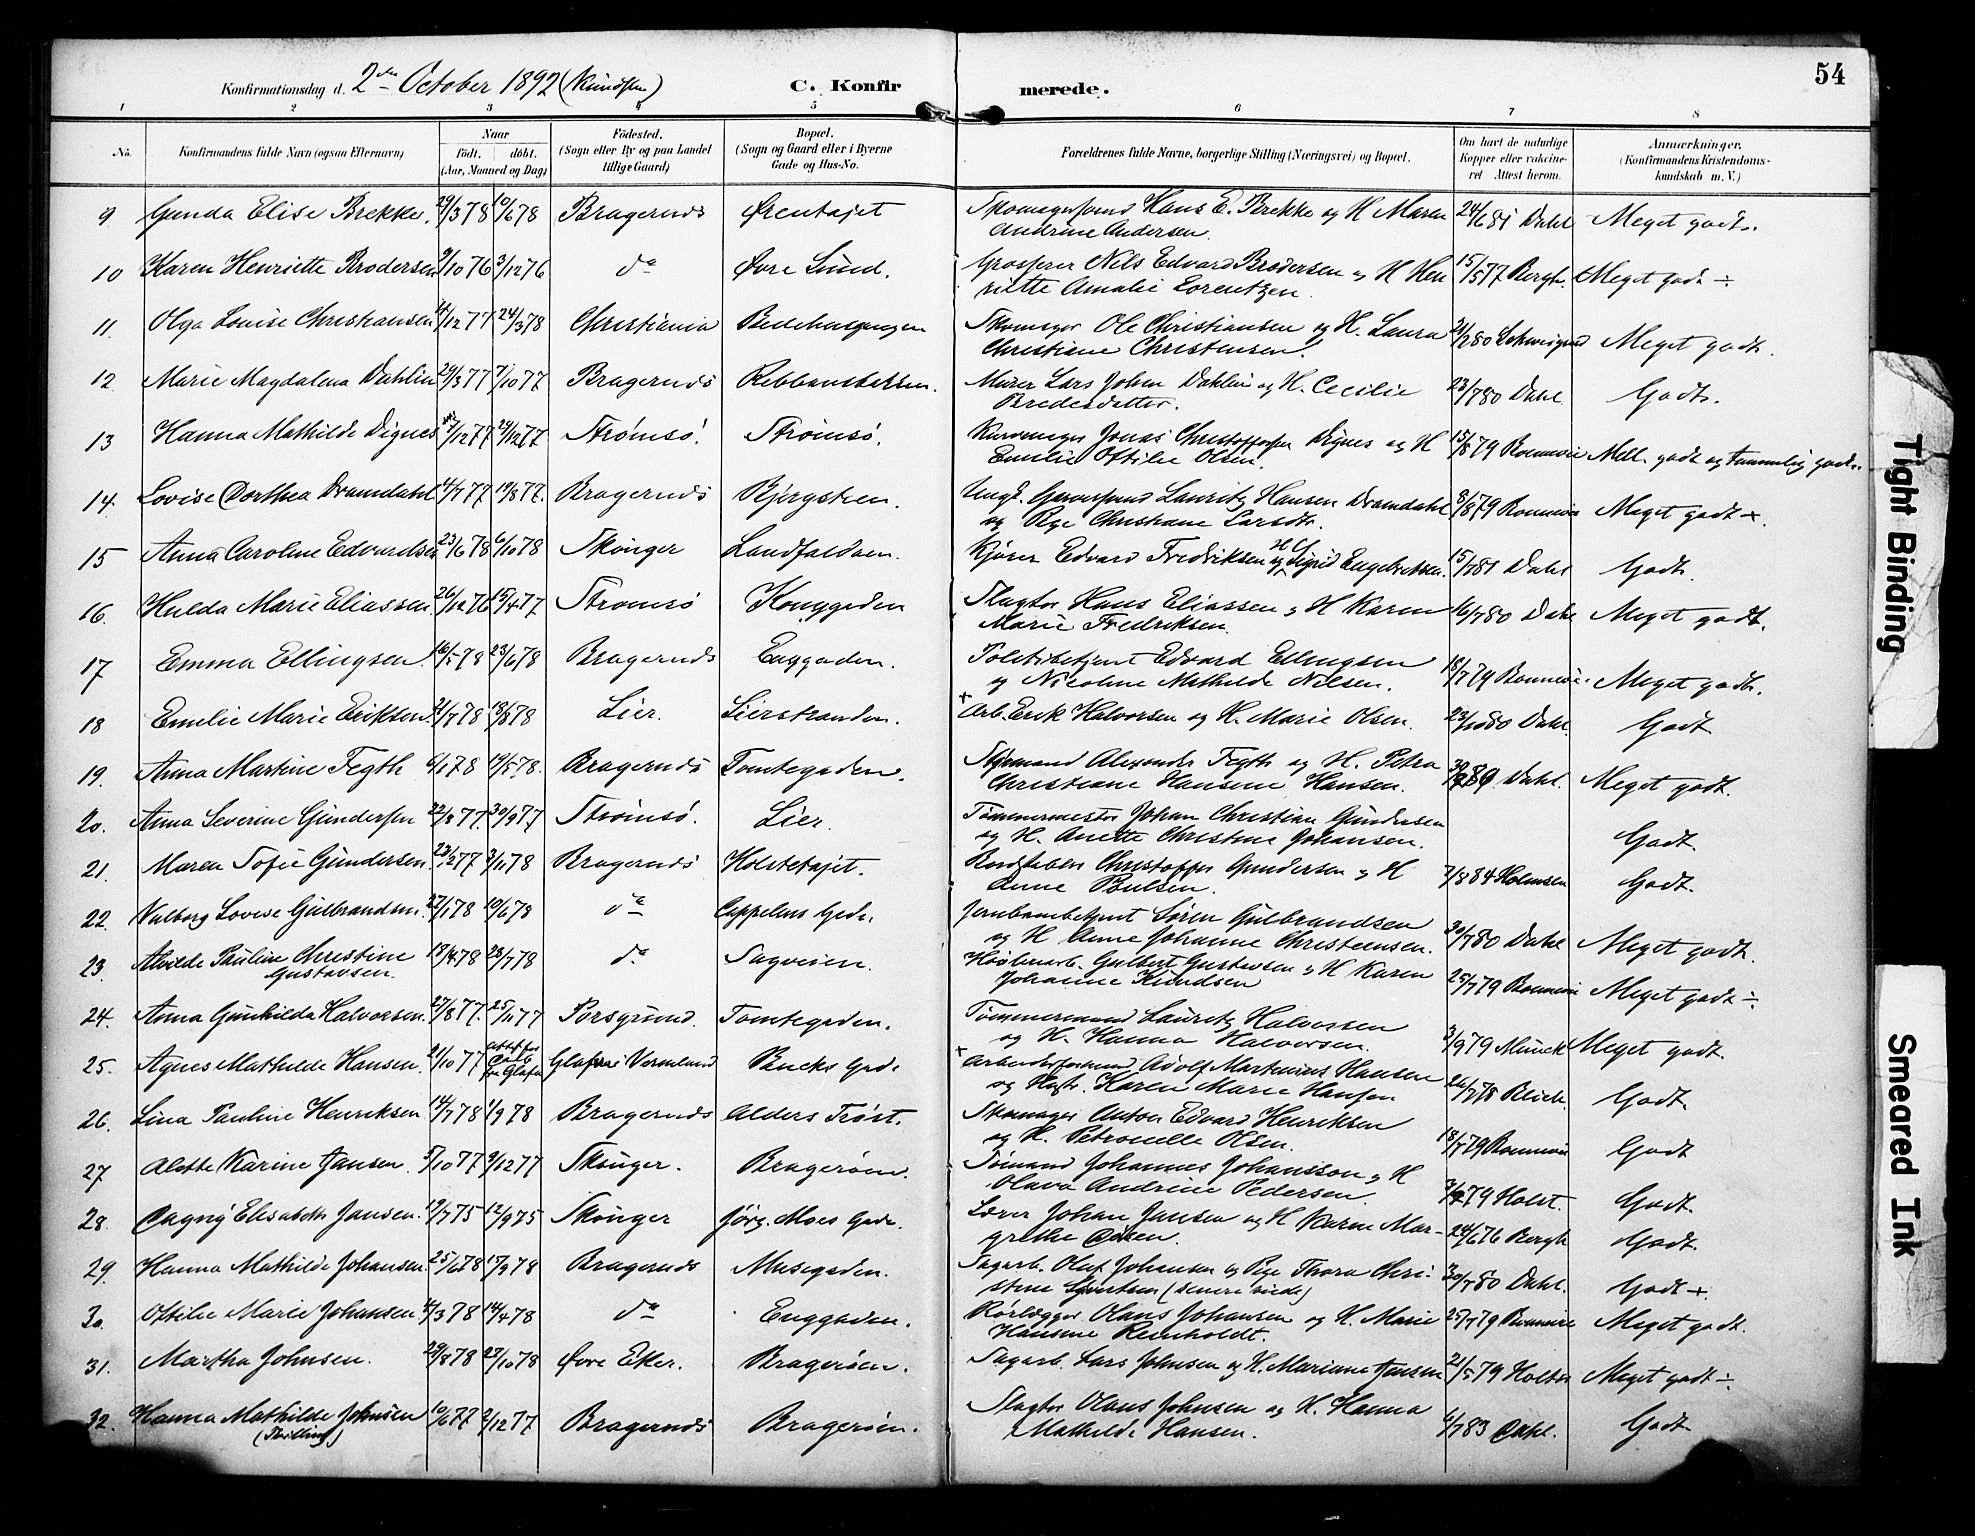 54
Konfirmationsdag d. 2den October 1892
C. Konfirmerede.
1 2 3 4 5 6 7 8
No. Konfirmandens fulde Navn (ogsaa Efternavn) Naar födt. döbt. (Aar, Maaned og Dag) Födested. (Sogn eller By og paa Landet tillige Gaard) Bopæl. (Sogn og Gaard eller i Byerne Gade og Hus-No. Forældrenes fulde Navne, borgerlige Stilling (Næringsvei) og Bopæl. Om havt de naturlige Kopper eller vakcineret Attest herom. Anmærkninger. (Konfirmandens Kristendomskundskab m. V.)
9 Gunda Elise Brekke. 29/3 78 10/6 78 Bragernæs Ørentøjet Hans E. Brekke og H Maren Andrine Andersen. 24/6 81 Dahl Meget godt.
10 Karen Henriette Brodersen 9/10 76 3/12 76 do Øvre Sund. Grosserer Nils Edvard Brodersen og H Henriette Amalie Lorentzen. 15/5 77 Bergh. Meget godt ÷
11. Olga Louise Christiansen 14/12 77 24/3 78 Christiania Bedehusgangen Skomager Ole Christiansen og H. Laura Christiane Christensen. Meget godt.
12 Marie Magdalena Dahlin 29/3 77 7/10 77 Bragernæs Murer Lars Johan Dahlin og H. Cecilie Bredesdatter. 23/7 80 Dahl Godt.
13 Hanna Mathilde Dignes /12 77 29/12 77 Strömsö. Strömsö. Kurvmager Jonas Christoffersen Dignes og H Emilie Ottilie Olsen. 15/8 79 Mell. godt og temmelig godt.
14. Lovise Dorthea Dramdahl 14/7 77 19/8 77. Bragernæs Bjergsteen. Ungk. Lauritz Hansen Dramdahl og Pige Christiane Larsdtr. 8/8 79 Meget godt +.
15 Anna Caroline Edvardsen 23/6 78 6/10 78 Skouger Landfaldøen. Kjører Edvard Fredriksen og H Sigrid Engebretsen. 15/7 81 Dahl Godt.
16. Hulda Marie Eliassen 26/12 76 15/4 77 Strömsö Konggaden Slagter Hans Eliassen og H Karen Marie Fredriksen. 16/7 80 Dahl Meget godt.
17 Emma Ellingsen. 16/5 78 23/6 78 Bragernæs Enggaden. Politibetjent Edvard Ellingsen og Nicoline Mathilde Nilsen. 18/7 79 Meget godt.
18 Emilie Marie Eriksen. 21/7 78 18/8 78 Lier. Lierstranden. Arb. Erik Halvorsen og H. Marie Olsen. 23/10 80 Dahl. Godt
19. Anna Martine Fegth 6/1 78 19/5 78. Bragernæs Tomtegaden. Styrmand Alexander Fegth og H. Petra Christiane Hansine Hansen. Dahl. Meget godt.
20. Anna Severine Gundersen 22/8 77. 30/9 77 Strömsö. Lier. Tömmermester Johan Christian Gundersen og H. Anette Christine Johansen. Godt.
21. Maren Sofie Gundersen 22/12 77 3/11 78 Bragernæs Holstetøjet. Christoffer Gundersen og H Anne Poulsen. 7/8 84 Holmsen Godt.
22. Valborg Lovise Gulbrandsen. 27/1 78 10/6 78 do Cappelens Gade. Jernbanebetjent Sören Gulbrandsen og H Anne Johanne Christensen. 30/7 80 Dahl Meget godt.
23. Alvilde Pauline Christine Gustavsen. 18/4 78 28/7 78 do Sagveien. Høvleriarb. Gulbert Gustavsen og H Karen Johanne Knudsen 25/7 79 Meget godt ÷
24. Anna Gunhilda Halvorsen. 27/8 77. 25/11 77 Porsgrund. Tomtegaden. Tömmermand Lauritz Halvorsen og H. Hanna Halvorsen. 3/9 79 Munck Meget godt.
25. Agnes Mathilde Hansen. 21/10 77 Glafva i Vermland Bucks Gade Arbeidsformand Adolf Martinius Hansen og Hust. Karen Marie Hansen 26/7 78 Blich. Godt.
26. Lina Pauline Henriksen 14/7 78 1/9 78 Bragernæs Alders Trøst. Skomager Anton Edvard Henriksen og H. Petronelle Olsen. 18/7 79 Godt
27 Alette Karine Jansen. 5/10 77 9/12 77 Skouger. Bragerøen. Tømand Johannes Johansson og H Olava Andrine Pedersen. Holst. Godt.
28. Dagny Elisabeth Jansen. 19/7 75 12/9 75 Skouger Jørg. Moes Gade. Lærer Johan Jansen og H Karen Margrethe Olsen. 24/6 76 Bergh Godt.
29. Hanna Mathilde Johansen. 25/6 78 15/9 78 Bragernæs Musegaden. Sagarb. Oluf Johansen og Pige Thora Christine (senere viede) 30/7 80 Dahl. Godt +.
30. Ottilie Marie Johansen 4/3 78 14/4 78 do Enggaden. Rørlægger Olaus Johansen og H. Marie Hansine Reinholdt. 25/7 79 Meget godt.
31. Martha Johnsen. 29/8 78 27/10 78 Øvre Eker. Bragerøen. Sagarb. Lars Johnsen og H. Mariane Jensen 21/5 79 Holter Meget godt ÷
32. Hanna Mathilde Johnsen (Tvilling) 10/6 77 2/12 77 Bragernæs Bragerøen. Slagter Olaus Johnsen og H. Hanna Mathilde Hansen. 6/7 83 Dahl. Godt.
Tight Binding
Smeared Ink